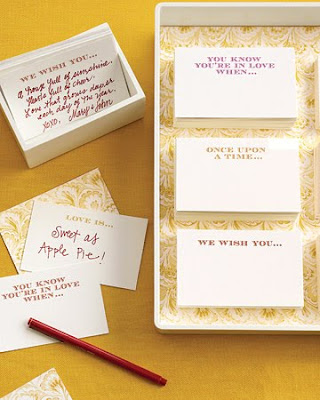 WE WISH YOU...
A house full of sunshine,
Hearts full of cheer
Love that grows deeper
each day of the year.
xoxo, Mary + John
LOVE IS...
Sweet as
Apple Pie!
YOU KNOW
YOU'RE IN LOVE
WHEN...
YOU KNOW
YOU'RE IN LOVE
WHEN...
ONCE UPON
A TIME...
WE WISH YOU...